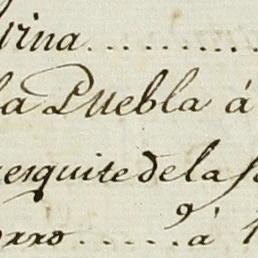 vina..........
la Puebla á
esquite de la
orro......á 1